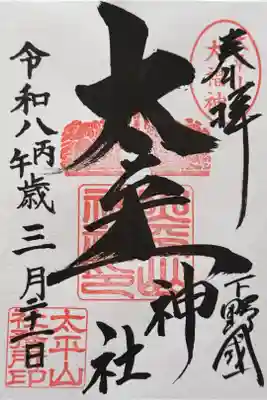 奉拝
下野國
太平山神社
令和八丙午歳三月二十一日
太平山
社務所印